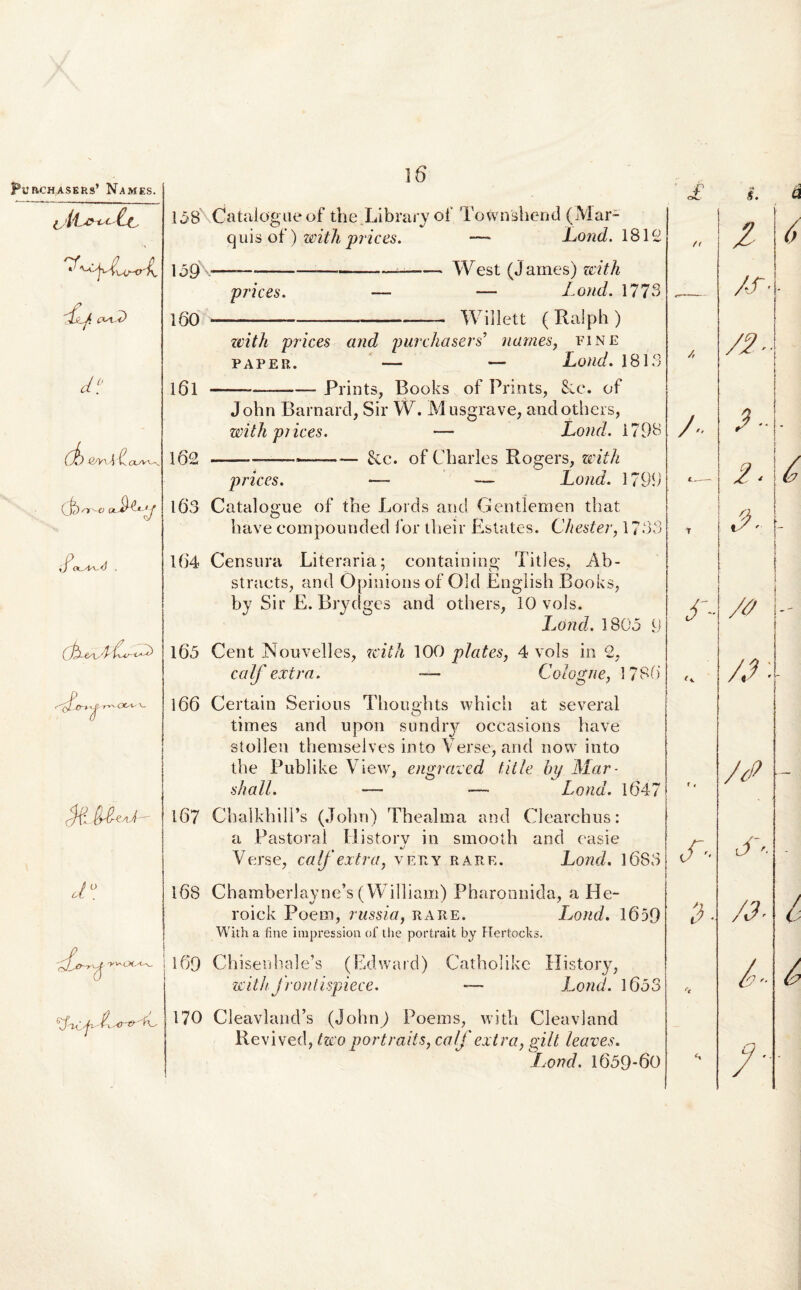 16
PURCHASERS' NAMES.
£ s. d
158 Catalogue of the Library of Townshend (Mar-
quis of) with prices. — Lond. 1812
" 2 6
159 ———— West (James) with
prices. — — Lond. 1773
15
160 ———— Willett (Ralph)
with prices and purchasers' names, FINE
PAPER. — — Lond. 1813
12
do
161 ———— Prints, Books of Prints, &c. of
John Barnard, Sir W. Musgrave, and others,
with prices. — Lond. 1798
1 3
162 ———— &c. of Charles Rogers, with
prices. — — Lond. 1799
2 6
163 Catalogue of the Lords and Gentlemen that
have compounded for their Estates. Chester, 1733
3
164 Censura Literaria; containing Titles, Ab-
stracts, and Opinions of Old English Books,
by Sir E. Brydges and others, 10 vols.
Lond. 1805 9
5 10
165 Cent Nouvelles, with 100 plates, 4 vols in 2,
calf extra. — Cologne, 1786
13
Longman
166 Certain Serious Thoughts which at several
times and upon sundry occasions have
stollen themselves into Verse, and now into
the Publike View, engraved title by Mar-
shall. — — Lond. 1647
18
167 Chalkhill's (John) Thealma and Clearchus:
a Pastoral History in smooth and easie
Verse, calf extra, VERY RARE. Lond. 1683
5 5
do
168 Chamberlayne's (William) Pharonnida, a He-
roick Poem, russia, RARE. Lond. 1659
With a fine impression of the portrait by Hertocks.
3 13 6
Longman
169 Chisenhale's (Edward) Catholike History,
with frontispiece. — Lond. 1653
6 6
170 Cleavland's (John) Poems, with Cleavland
Revived, two portraits, calf extra, gilt leaves.
Lond. 1659-60
9